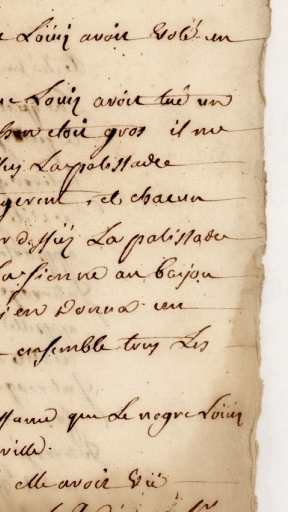 Loüis avoit volé un
Loüis avoit tué un
etoit gros il me
La palissade
gerent, et chacun
dessus La palissade
la sienne au bayou
j en Donna un
ensemble tous Les
que Le negre Loüis
ville.
elle avoit